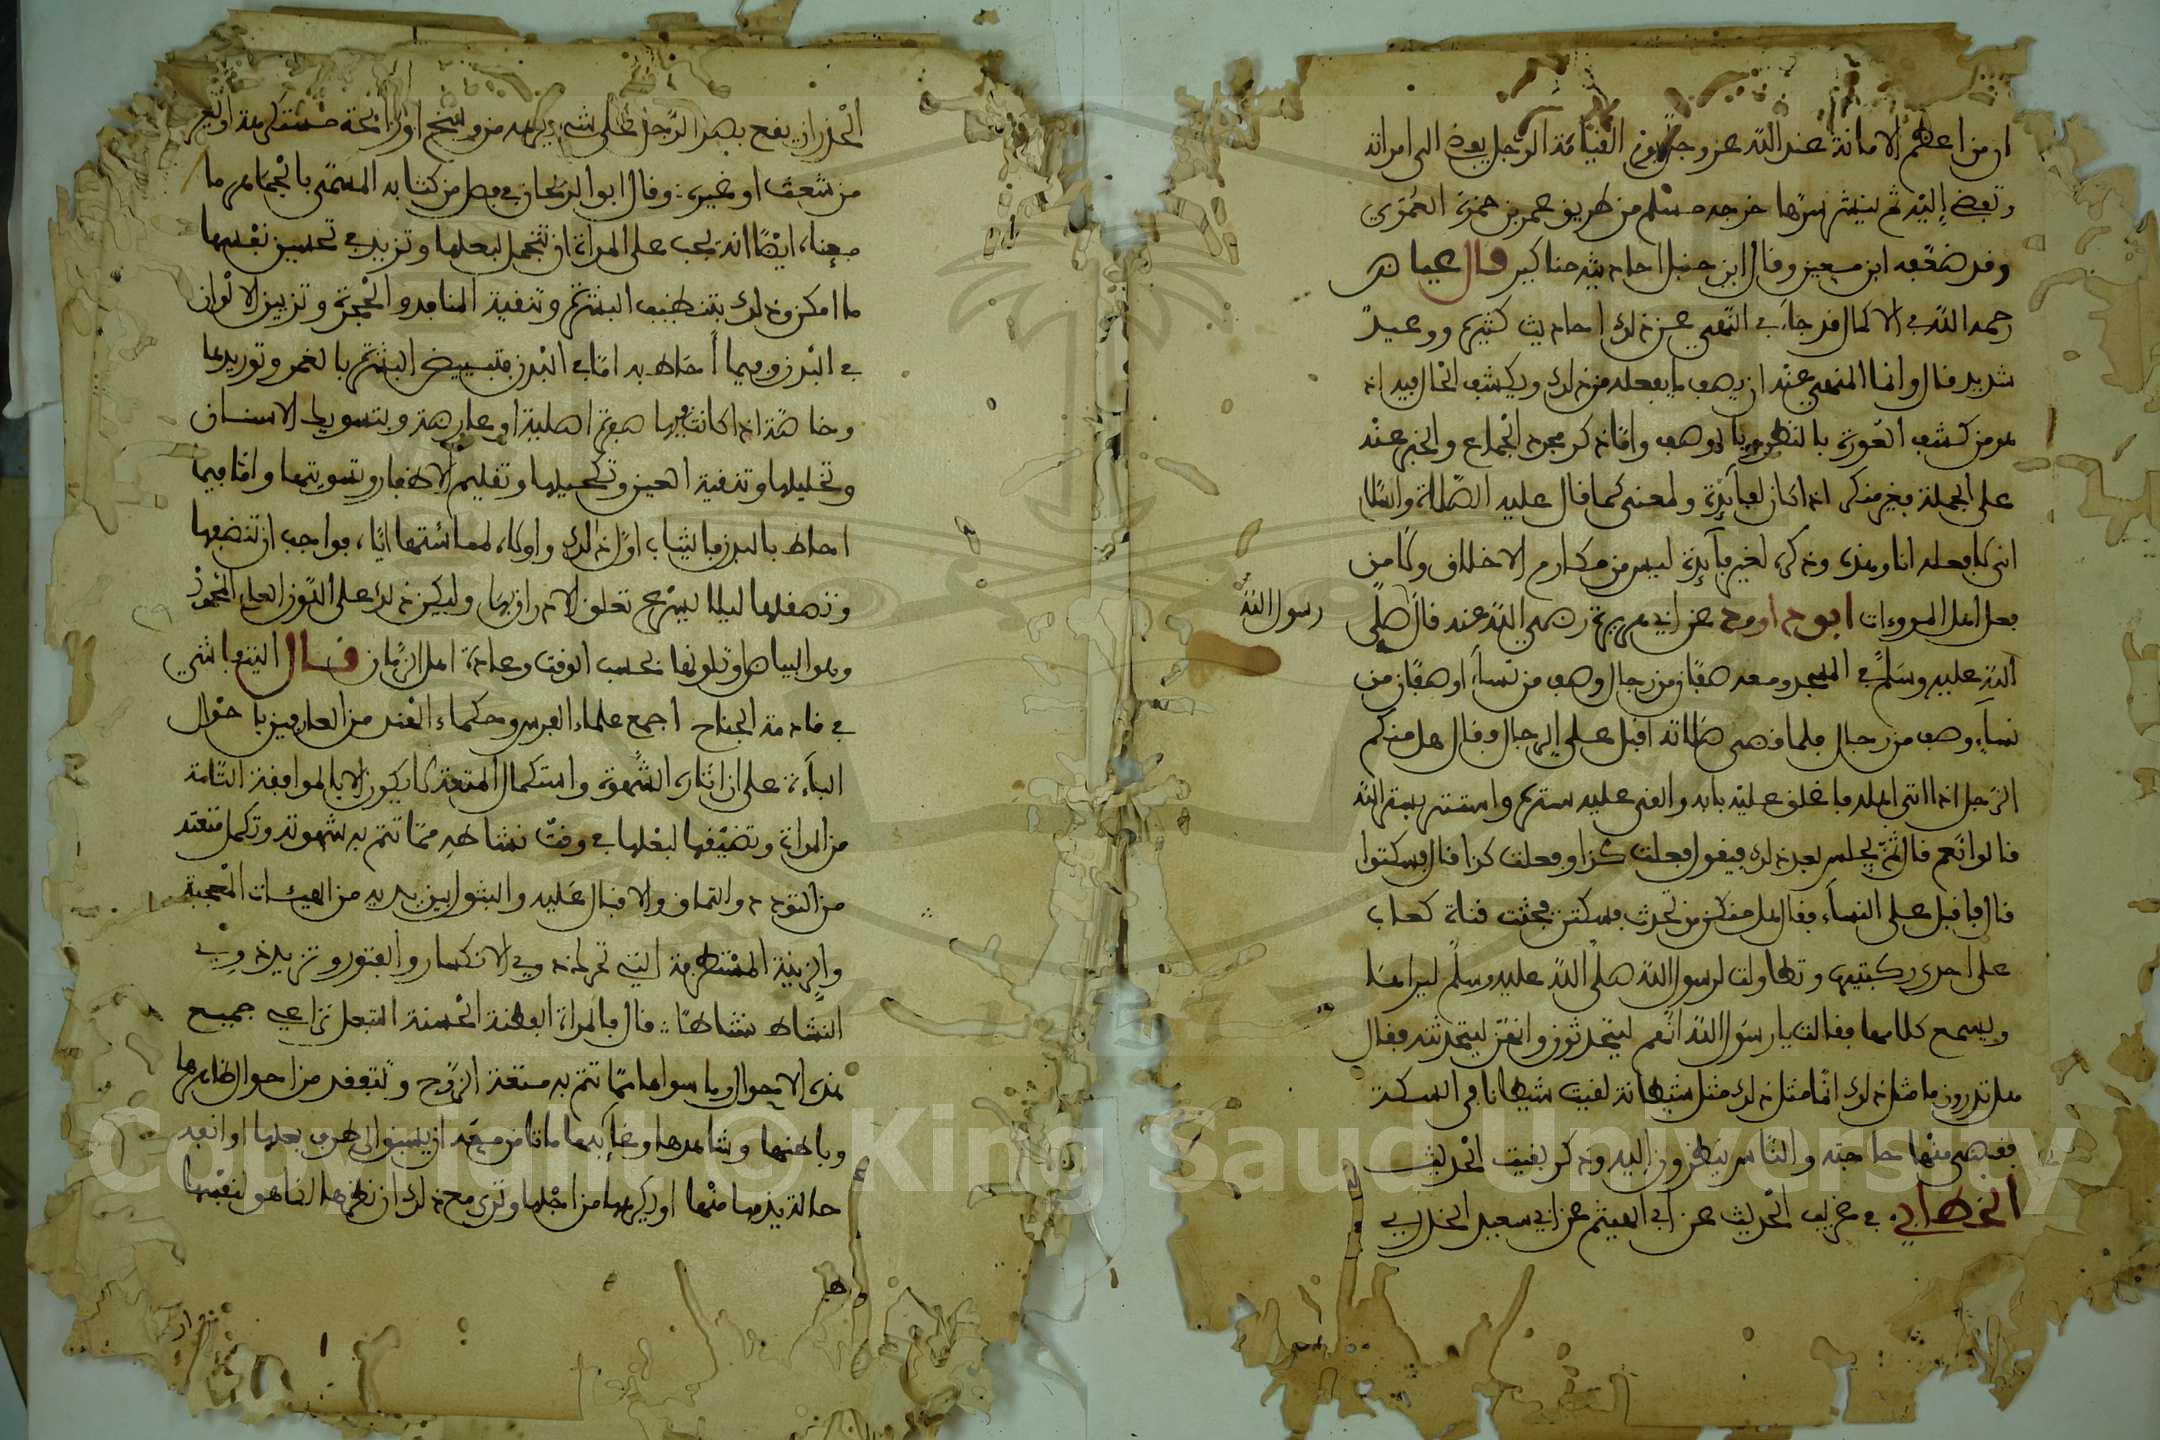 ان من اعظم الامانة عند الله عز وجل يوم القيامة الرجل يفضي الى امراته
وتفضي إليه ثم ينشر سرها خرجه مسلم من طريق عمر بن حمزة العمري
وقد ضعفه ابن معين وقال ابن حنبل احاديثه مناكير قال عياض
رحمه الله في الاكمال قد جاء في النهي عن ذلك احاديث كثيرة ووعيد
شديد قال وانما المنهي عنه ان يصف ما يفعله من ذلك ويكشف الحال فيه اذ
هو من كشف العورة بالنظر او بالوصف واما ذكر مجرد الجماع والخبر عنه
على الجملة فغير منكر اذا كان لفائدة ولمعنى كما قال عليه الصلاة والسلام
انى لافعله انا وهذه وذكره لغير فائدة ليس من مكارم الاخلاق ولا من
فعل اهل المروءات ابو داود عن ابي هريرة رضي الله عنه قال صلى
رسول الله
الله عليه وسلم في المسجد ومعه صفان من رجال وصف من نساء او صفان من
نساء وصف من رجال فلما قضى صلاته اقبل على الرجال وقال هل منكم
الرجل اذا اتى اهله فاغلق عليه بابه والقى عليه ستره واستتر بستر الله
قالوا نعم قال ثم يجلس بعد ذلك فيقول فعلت كذا وفعلت كذا قال فسكتوا
قال فاقبل على النساء فقال هل منكن من تحدث فسكتن فجثت فتاة كعاب
على احدى ركبتيها وتطاولت لرسول الله صلى الله عليه وسلم ليراها
ويسمع كلامها فقالت يا رسول الله انهم ليتحدثون وانهن ليتحدثنه فقال
هل تدرون ما مثل ذلك انما مثل ذلك مثل شيطانة لقيت شيطانا في السكة
فقضى منها حاجته والناس ينظرون إليه وذكر بقية الحديث
الخطابي في غريب الحديث عن ابي الهيثم عن ابي سعيد الخدري
الحذر ان يقع بصر الرجل على شيء يكرهه من وسخ او رائحة مستكرهة او تغير
من شعث او غيره وقال ابو الريحان في فصل من كتابه المسمى بالجماهر ما
معناه ايضا انه يجب على المراة ان تتجمل لبعلها وتزيد في تحسين نفسها
ما امكن وذلك بتنظيف البشرة وتنقية المنافذ والحجرة وتزيين الالوان
في البدن وفيما أحاط به اما في البدن فتبييض البشرة بالغمر وتوريدها
وخاصة اذا كانت فيها صفرة اصلية او عارضة وبتسويك الاسنان
وتخليلها وتنقية العين وتكحيلها وتقليم الاظفار وتسويتها واما فيما
احاط بالبدن فالثياب اول ذلك واولاه لمماستها اياه فواجب ان تنضفها
وتصقلها ليلا يسرع تعلق الادران بها وليكن ذلك على اللون العام المحمود
وهو البياض وتلونها بحسب الوقت وعادة اهل الزمان قال التيفاشي
في قادمة الجناح اجمع علماء الفرس وحكماء الهند من العارفين باحوال
الباءة على ان اثارة الشهوة واستكمال المتعة لا يكون الا بالموافقة التامة
من المراة وتصنيفها لبعلها في وقت نشاطه مما تتم به شهوته وتكمل متعته
من التودد والتملق والاقبال عليه والمثول بين يديه من الهيئات المعجبة
والزينة المستظرفة التي تحرك ذوي الانكسار والفتور وتزيد ذوي
النشاط نشاطا قال فالمراة الفطنة الحسنة التبعل تراعي جميع
هذه الاحوال وما سواها مما تتم به متعة الزوج وتتفقد من احوال ظاهرها
وباطنها وشاهدها وغايبها ما تامن معه ان يسبق الى طرف بعلها او انفه
حالة يذمها منها او يكرهها من اجلها وترى مع ذلك ان نظرها لنفسها